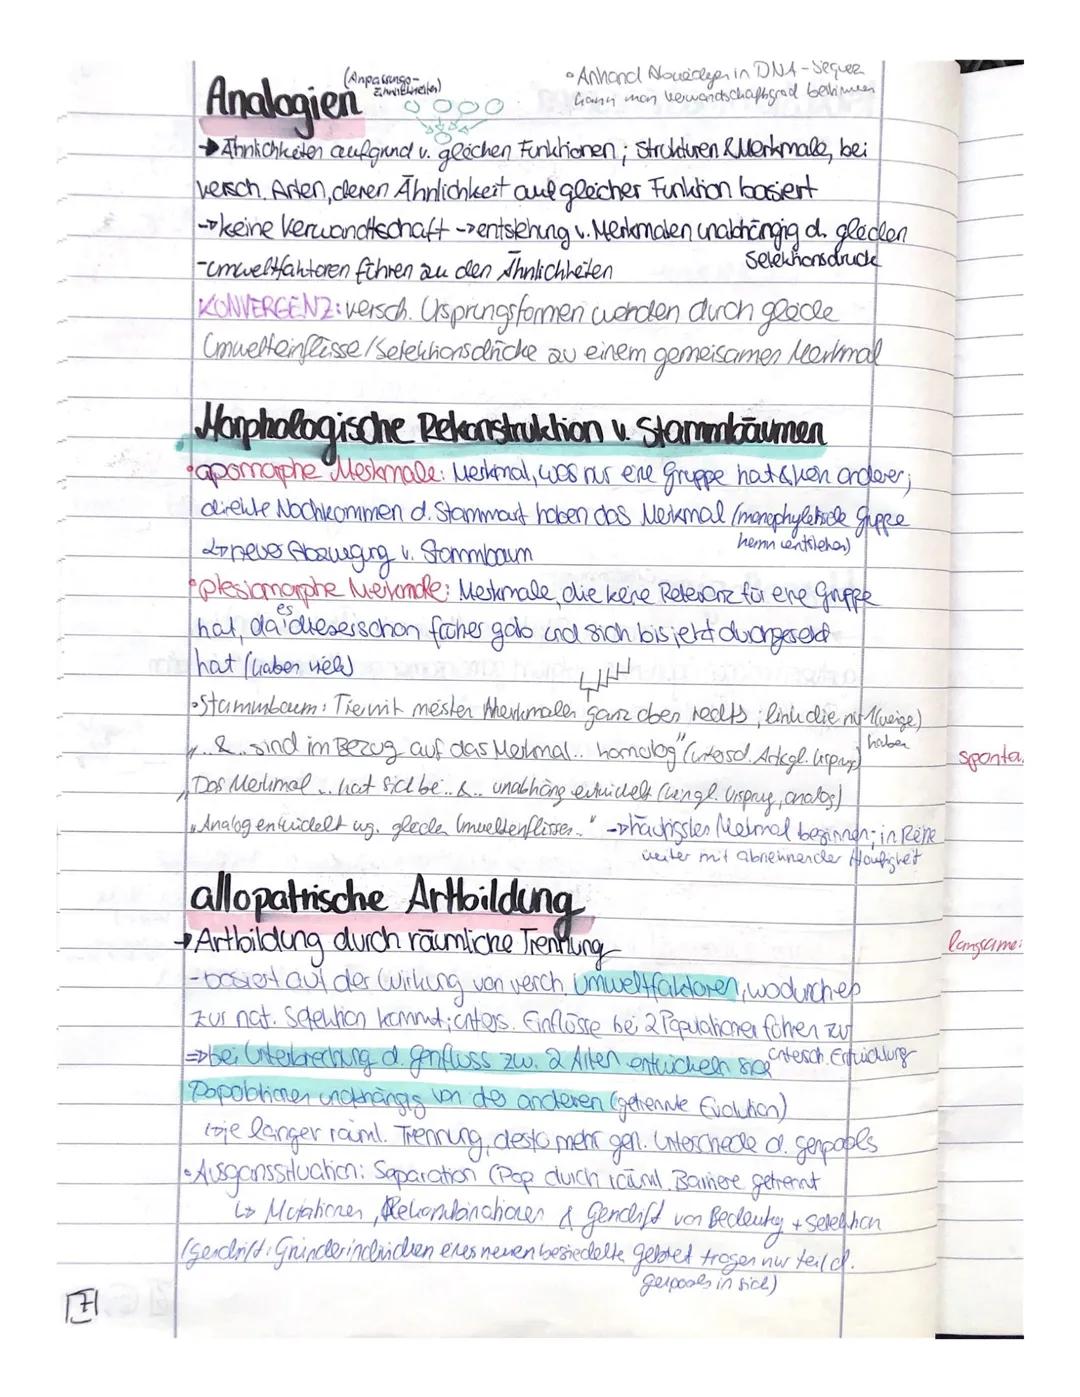 Analogien (Anpassungsähnlichkeiten)
• Anhand Abweichungen in DNA-Sequenz
kann man Verwandschaftsgrad bestimmen
→ Ähnlichkeiten aufgrund v. gleichen Funktionen; Strukturen & Merkmale, bei
versch. Arten, deren Ähnlichkeit auf gleicher Funktion basiert
→ keine Verwandtschaft → entstehung v. Merkmalen unabhängig d. gleichen
Selektionsdruck
- umweltfaktoren führen zu den Ähnlichkeiten
KONVERGENZ: versch. Ursprungsformen werden durch gleiche
Umwelteinflüsse/Selektionsdrücke zu einem gemeisamen Merkmal
Morphologische Rekonstruktion v. Stammbäumen
• apomorphe Merkmale: Merkmal, was nur eine Gruppe hat & kein anderer;
direkte Nachkommen d. Stammart haben das Merkmal (monophyletische Gruppe
kann entstehen)
↳ neue Abzweigung v. Stammbaum
• plesiomorphe Merkmale: Merkmale, die keine Relevanz für eine Gruppe
hat, da es dieses schon früher gab und sich bis jetzt durchgesetzt
hat (haben viele)
• Stammbaum: Tier mit meisten Merkmalen ganz oben rechts; links die mit 1 (wenige)
haben
"... & ... sind im Bezug auf das Merkmal ... homolog" (untersch. Art, gl. Ursprung)
"Das Merkmal ... hat sich bei ... & ... unabhäng entwickelt (ungl. Ursprung, analog)
"Analog entwickelt wg. gleichen Umwelteinflüssen..." → häufigsten Merkmal beginnen; in Reihe
weiter mit abnehmender Häufigkeit
sponta.
allopatrische Artbildung
→ Artbildung durch räumliche Trennung
langsame
- basiert auf der Wirkung von versch. Umweltfaktoren, wodurch es
zur nat. Selektion kommt; unters. Einflüsse bei 2 Populationen führen zu
untersch. Entwicklung
⇒ bei Unterbrechung d. Genfluss zw. 2 Arten entwickeln sich
Populationen unabhängig von des anderen (getrennte Evolution)
↳ je länger räuml. Trennung, desto mehr gen. Unterschiede d. genpools
• Ausganssituation: Separation (Pop durch räuml. Barriere getrennt
↳ Mutationen, Rekombinationen & Gendrift von Bedeutung + Selektion
(gendrift: Gründerindividuen eines neuen besiedelte gebiet tragen nur teil d.
genpools in sich)
7